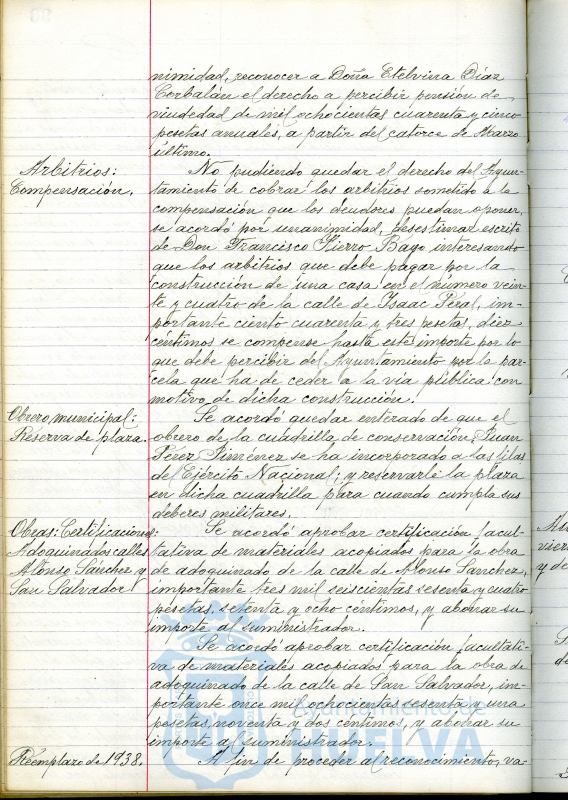 nimidad, reconocer a Doña Etelvina Díaz
Corbalán el derecho a percibir pensión de
viudedad de mil ochocientas cuarenta y cinco
pesetas anuales, a partir del catorce de Marzo
último.
Arbitrios:
Compensación.
No pudiendo quedar el derecho del Ayun-
tamiento de cobrar los arbitrios sometido a la
compensación que los deudores puedan oponer,
se acordó por unanimidad, desestimar escrito
de Don Francisco Hierro Bago interesando
que los arbitrios que debe pagar por la
construcción de una casa en el numero vein-
te y cuatro de la calle de Isaac Peral, im-
portante ciento cuarenta y tres pesetas, diez
céntimos se compense hasta este importe por lo
que debe percibir del Ayuntamiento por la par-
cela que ha de ceder a la vía pública con
motivo de dicha construcción.
Obrero municipal:
Reserva de plaza.
Se acordó quedar enterado de que el
obrero de la cuadrilla de conservación, Juan
Pérez Jiménez se ha incorporado a las filas
del Ejército Nacional; y reservarle la plaza
en dicha cuadrilla para cuando cumpla sus
deberes militares.
Obras: Certificaciones:
Adoquinados calles
Alonso Sánchez y
San Salvador
Se acordó aprobar certificación facul-
tativa de materiales acopiados para la obra
de adoquinado de la calle de Alonso Sanchez,
importante tres mil seiscientas sesenta y cuatro
pesetas, setenta y ocho céntimos, y abonar su
importe al suministrador.
Se acordó aprobar certificación facultati-
va de materiales acopiados para la obra de
adoquinado de la calle de San Salvador, im-
portante once mil ochocientas sesenta y una
pesetas, noventa y dos céntimos, y abonar su
importe al suministrador.
Reemplazo de 1938.
A fin de proceder al reconocimiento, va-
Ayuntamiento de
HUELVA